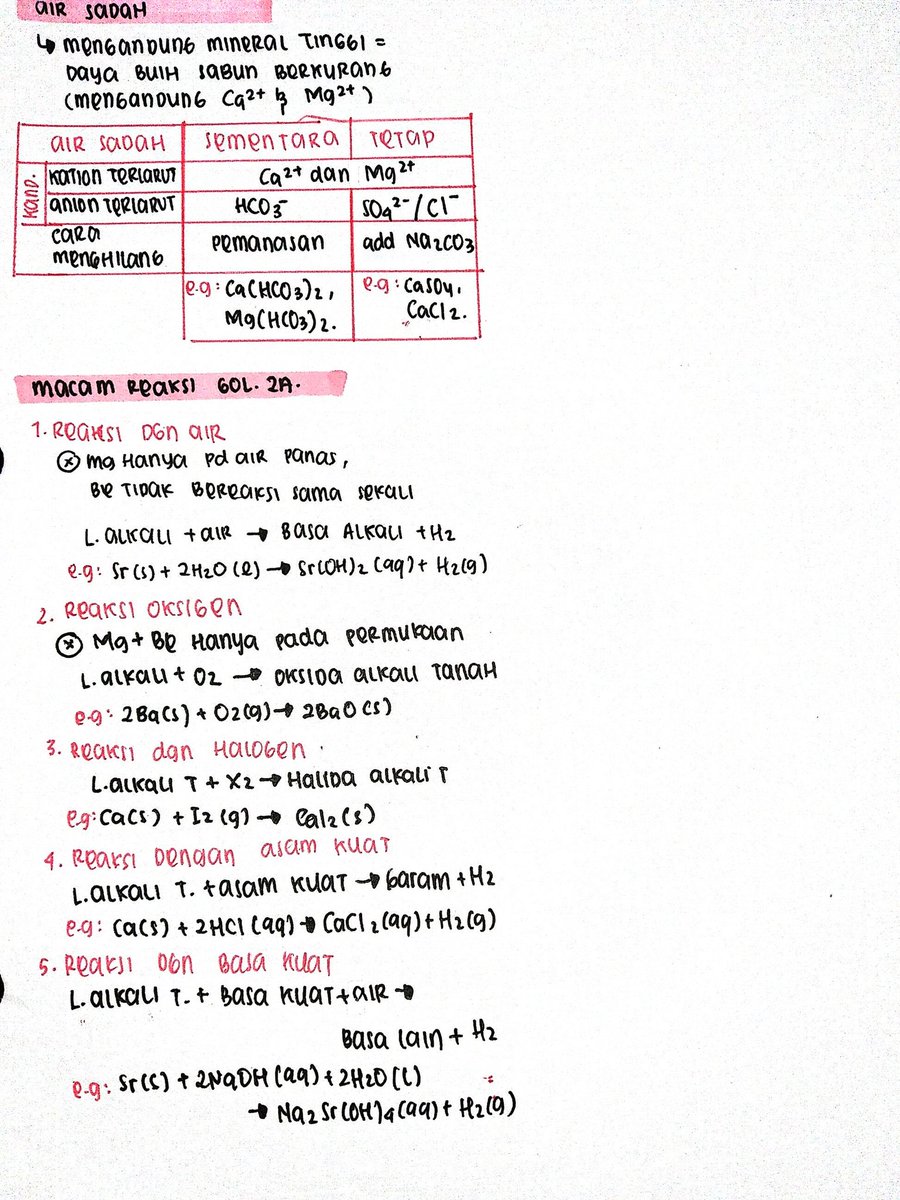 AIR SADAH
↳ mengandung mineral tinggi =
Daya Buih Sabun Berkurang
(mengandung Ca²⁺ & Mg²⁺)
AIR SADAH SEMENTARA TETAP
KAND. KATION TERLARUT Ca²⁺ dan Mg²⁺
ANION TERLARUT HCO3⁻ SO4²⁻/Cl⁻
CARA MENGHILANG PEMANASAN add Na2CO3
e.g: Ca(HCO3)2, Mg(HCO3)2. e.g: CaSO4, CaCl2.
macam Reaksi GOL. 2A.
1. Reaksi DGN AIR
⊛ Mg Hanya pd AIR PANAS,
Be TIDAK BEREAKSI sama sekali
L. alkali + AIR → BASA ALKALI + H2
e.g: Sr(s) + 2H2O(l) → Sr(OH)2(aq) + H2(g)
2. Reaksi OKSIGEN
⊛ Mg + Be Hanya pada PERMUKAAN
L. alkali + O2 → OKSIDA ALKALI TANAH
e.g: 2Ba(s) + O2(g) → 2BaO(s)
3. Reaksi dgn HALOGEN
L. alkali T + X2 → Halida alkali T
e.g: Ca(s) + I2(g) → CaI2(s)
4. Reaksi Dengan asam KUAT
L. alkali T. + asam KUAT → Garam + H2
e.g: Ca(s) + 2HCl(aq) → CaCl2(aq) + H2(g)
5. Reaksi DGN BASA KUAT
L. alkali T. + BASA KUAT + AIR →
Basa lain + H2
e.g: Sr(s) + 2NaOH(aq) + 2H2O(l)
→ Na2Sr(OH)4(aq) + H2(g)